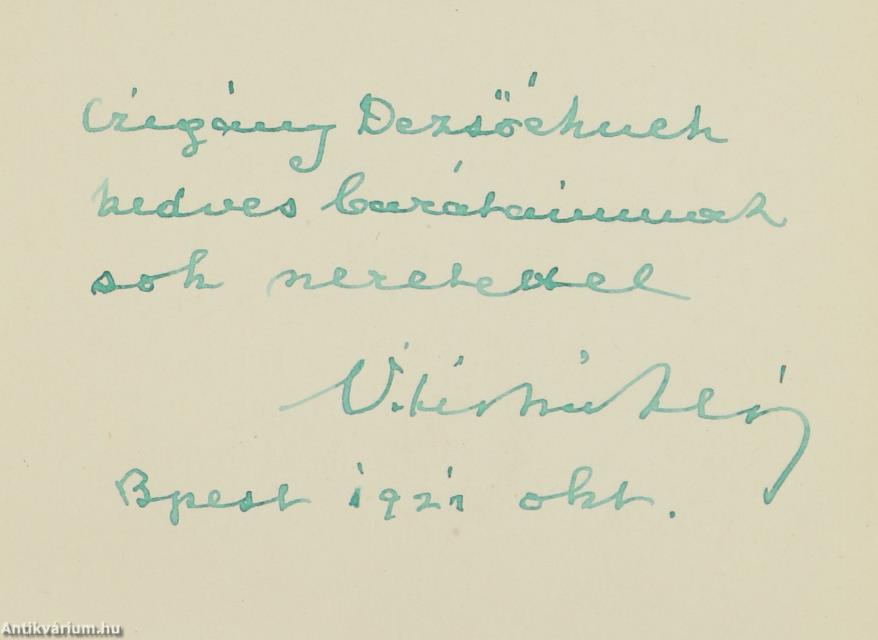 Czigány Dezsőéknek
kedves barátaimnak
sok szeretettel
Vitéz Miklós
Bpest 1921 okt.
Antikvárium.hu